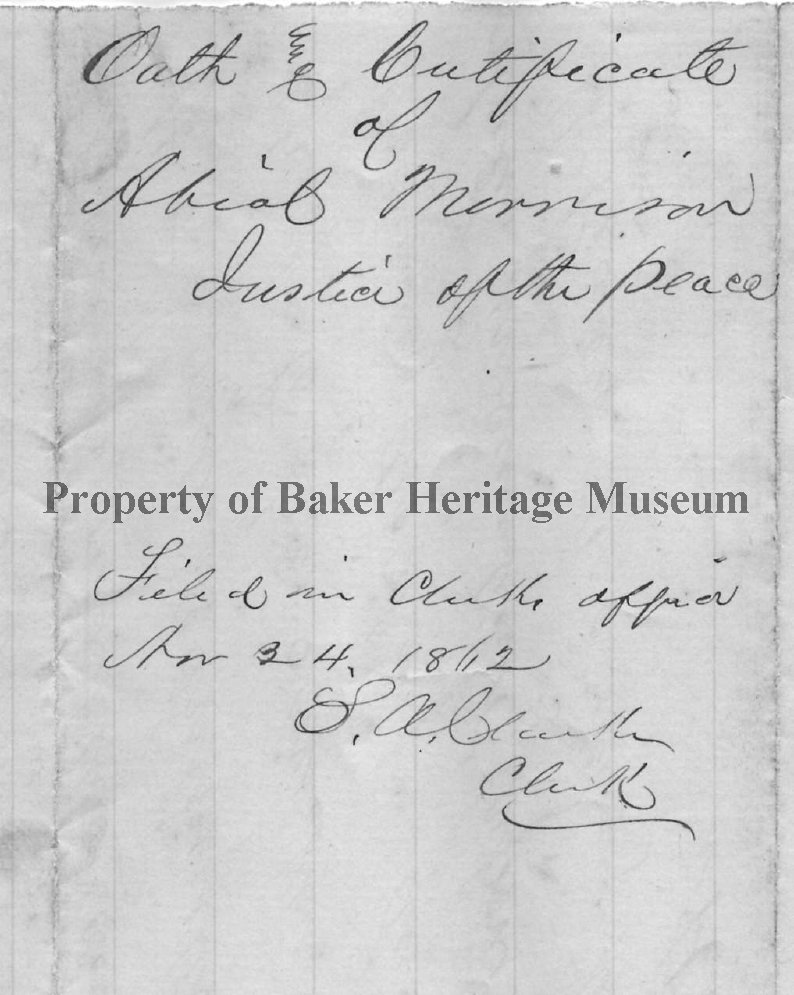 Oath & Certificate
of
Abial Morrison
Justice of the Peace
Property of Baker Heritage Museum
Filed in Clerks office
Nov 24, 1862
S. A. Clarke
Clerk